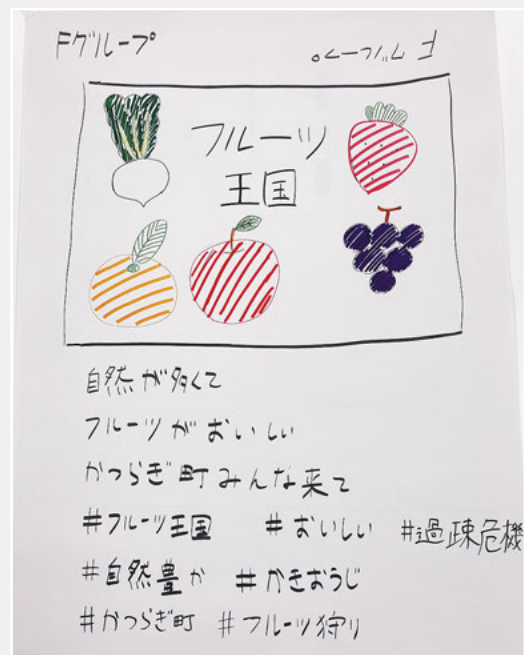 Fグループ
Fグループ
フルーツ
王国
自然が多くて
フルーツがおいしい
かつらぎ町みんな来て
#フルーツ王国 #おいしい #過疎危機
#自然豊か #かきおうじ
#かつらぎ町 #フルーツ狩り